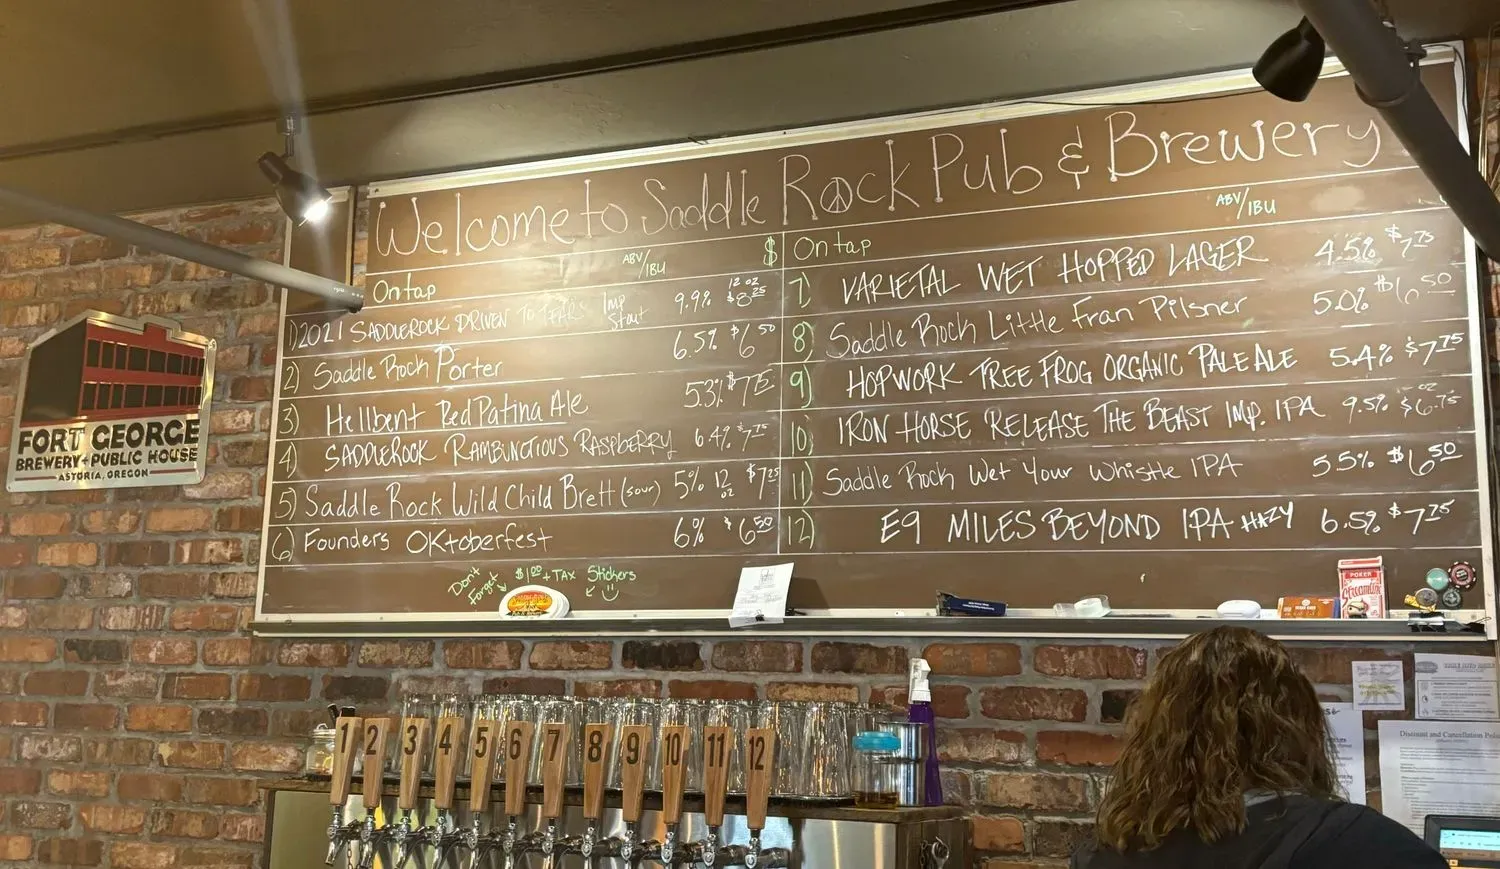 Welcome to Saddle Rock Pub & Brewery
On tap ABV/IBU $
1) 2021 SADDLEROCK DRIVEN TO TEARS Imp Stout 9.9% 12 oz $8.25
2) Saddle Rock Porter 6.5% $6.50
3) Hellbent Red Patina Ale 5.3% $7.75
4) SADDLEROCK RAMBUNCTIOUS RASPBERRY 6.4% $7.75
5) Saddle Rock Wild Child Brett (sour) 5% 12 oz $7.25
6) Founders OKtoberfest 6% $6.50
On tap ABV/IBU
7) VARIETAL WET HOPPED LAGER 4.5% $7.75
8) Saddle Rock Little Fran Pilsner 5.0% $6.50
9) HOPWORK TREE FROG ORGANIC PALE ALE 5.4% $7.75
10) IRON HORSE RELEASE THE BEAST IMP. IPA 9.5% $6.75
11) Saddle Rock Wet Your Whistle IPA 5.5% $6.50
12) E9 MILES BEYOND IPA HAZY 6.5% $7.25
Don't Forget $1.00 + TAX Stickers
FORT GEORGE
BREWERY + PUBLIC HOUSE
ASTORIA, OREGON
POKER
Streamline
1 2 3 4 5 6 7 8 9 10 11 12
Discount and Cancellation